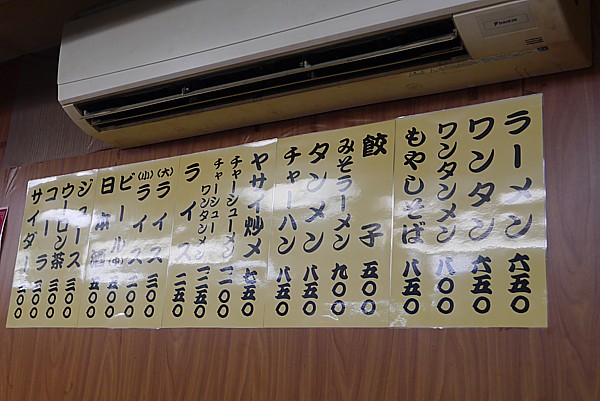 DAIKIN
ラーメン 六五〇
ワンタン 六五〇
ワンタンメン 八〇〇
もやしそば 八五〇
餃子 五〇〇
みそラーメン 九〇〇
タンメン 八五〇
チャーハン 八五〇
ヤサイ炒メ 七五〇
チャーシューメン
チャーシューワンタンメン
ライス 二五〇
(大)ライス 三〇〇
(小)ライス
ビール
日本酒
ジュース 三〇〇
ウーロン茶 三〇〇
コーラ 三〇〇
サイダー 三〇〇